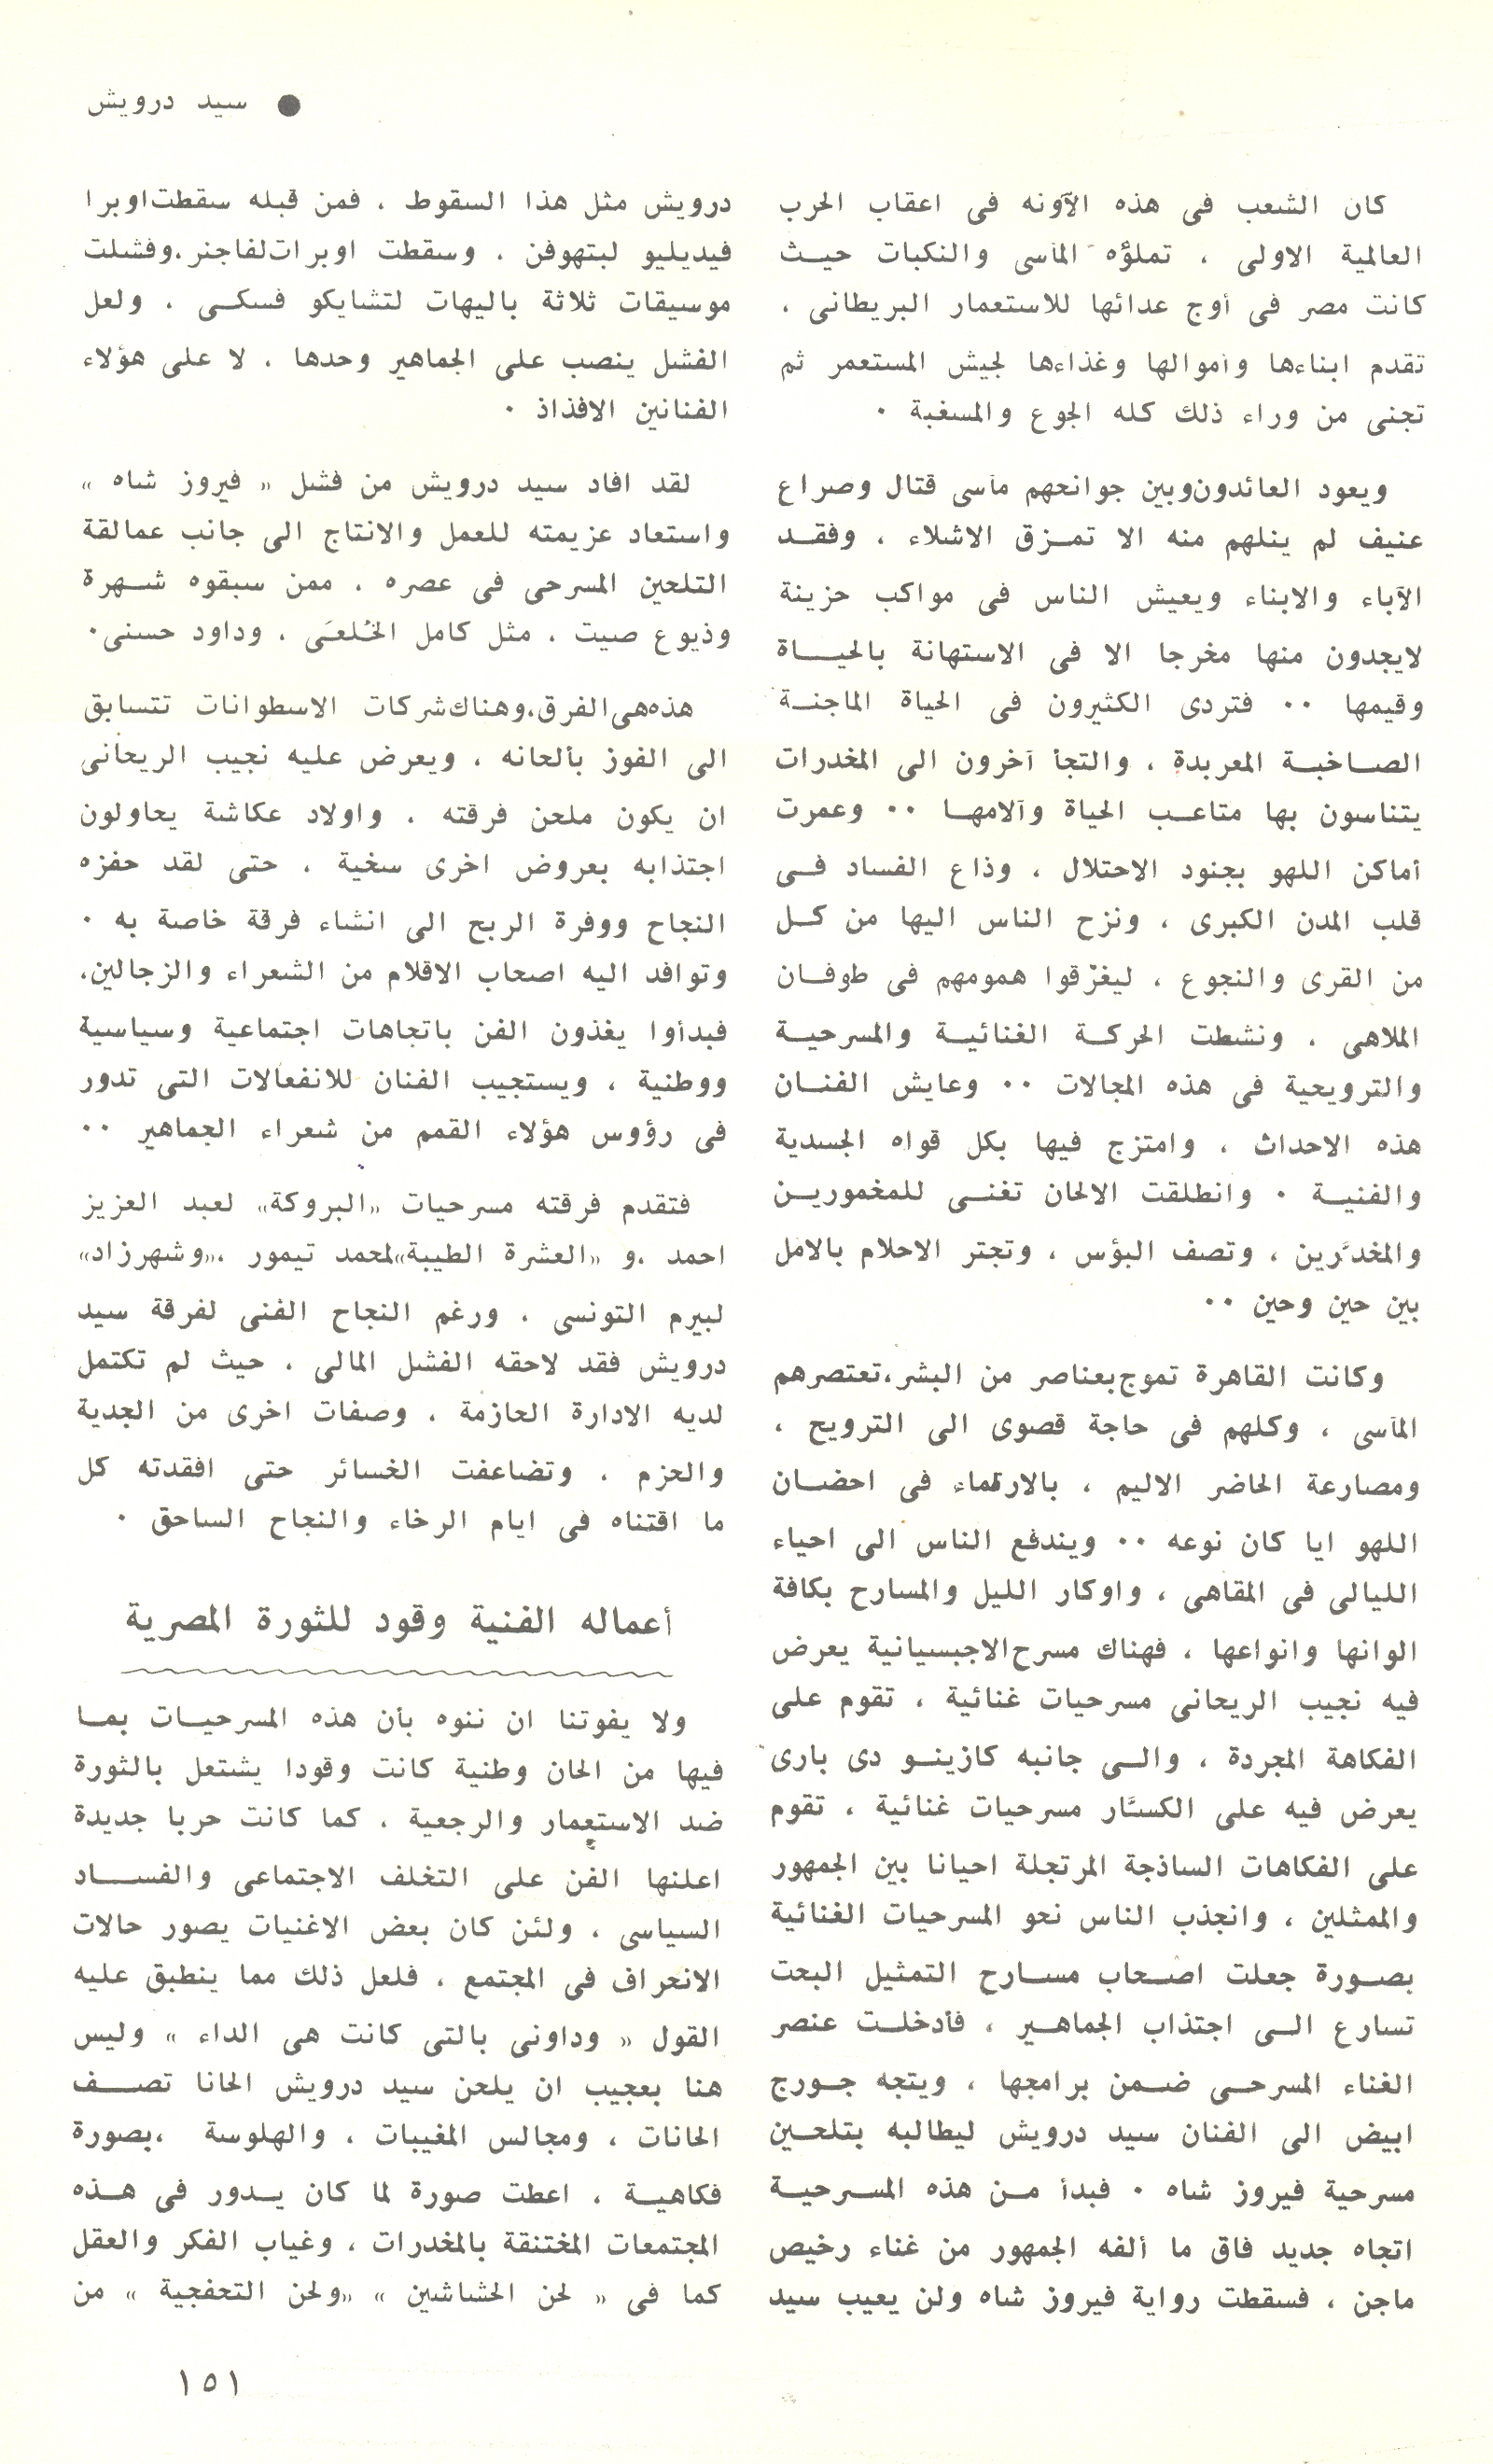 ● سيد درويش
كان الشعب فى هذه الآونه فى اعقاب الحرب
العالمية الاولى ، تملؤه المآسى والنكبات حيث
كانت مصر فى أوج عدائها للاستعمار البريطانى ،
تقدم ابناءها وأموالها وغذاءها لجيش المستعمر ثم
تجنى من وراء ذلك كله الجوع والمسغبة ٠
ويعود العائدون وبين جوانحهم مآسى قتال وصراع
عنيف لم ينلهم منه الا تمزق الاشلاء ، وفقد
الآباء والابناء ويعيش الناس فى مواكب حزينة
لايجدون منها مخرجا الا فى الاستهانة بالحياة
وقيمها ٠٠ فتردى الكثيرون فى الحياة الماجنة
الصاخبة المعربدة ، والتجأ آخرون الى المخدرات
يتناسون بها متاعب الحياة وآلامها ٠٠ وعمرت
أماكن اللهو بجنود الاحتلال ، وذاع الفساد فى
قلب المدن الكبرى ، ونزح الناس اليها من كل
من القرى والنجوع ، ليغرّقوا همومهم فى طوفان
الملاهى ، ونشطت الحركة الغنائية والمسرحية
والترويحية فى هذه المجالات ٠٠ وعايش الفنان
هذه الاحداث ، وامتزج فيها بكل قواه الجسدية
والفنية ٠ وانطلقت الالحان تغنى للمغمورين
والمخدّرين ، وتصف البؤس ، وتجتر الاحلام بالامل
بين حين وحين ٠٠
وكانت القاهرة تموج بعناصر من البشر، تعتصرهم
المآسى ، وكلهم فى حاجة قصوى الى الترويح ،
ومصارعة الحاضر الاليم ، بالارتماء فى احضان
اللهو ايا كان نوعه ٠٠ ويندفع الناس الى احياء
الليالى فى المقاهى ، واوكار الليل والمسارح بكافة
الوانها وانواعها ، فهناك مسرح الاجبسيانية يعرض
فيه نجيب الريحانى مسرحيات غنائية ، تقوم على
الفكاهة المجردة ، والى جانبه كازينو دى بارى
يعرض فيه على الكسّار مسرحيات غنائية ، تقوم
على الفكاهات الساذجة المرتجلة احيانا بين الجمهور
والممثلين ، وانجذب الناس نحو المسرحيات الغنائية
بصورة جعلت اصحاب مسارح التمثيل البحت
تسارع الى اجتذاب الجماهير ، فأدخلت عنصر
الغناء المسرحى ضمن برامجها ، ويتجه جورج
ابيض الى الفنان سيد درويش ليطالبه بتلحين
مسرحية فيروز شاه ٠ فبدأ من هذه المسرحية
اتجاه جديد فاق ما ألفه الجمهور من غناء رخيص
ماجن ، فسقطت رواية فيروز شاه ولن يعيب سيد
درويش مثل هذا السقوط ، فمن قبله سقطت اوبرا
فيديليو لبتهوفن ، وسقطت اوبرات لفاجنر، وفشلت
موسيقات ثلاثة باليهات لتشايكو فسكى ، ولعل
الفشل ينصب على الجماهير وحدها ، لا على هؤلاء
الفنانين الافذاذ ٠
لقد افاد سيد درويش من فشل « فيروز شاه »
واستعاد عزيمته للعمل والانتاج الى جانب عمالقة
التلحين المسرحى فى عصره ، ممن سبقوه شهرة
وذيوع صيت ، مثل كامل الخُلعَى ، وداود حسنى٠
هذه هى الفرق، وهناك شركات الاسطوانات تتسابق
الى الفوز بألحانه ، ويعرض عليه نجيب الريحانى
ان يكون ملحن فرقته ، واولاد عكاشة يحاولون
اجتذابه بعروض اخرى سخية ، حتى لقد حفزه
النجاح ووفرة الربح الى انشاء فرقة خاصة به ٠
وتوافد اليه اصحاب الاقلام من الشعراء والزجالين،
فبدأوا يغذون الفن باتجاهات اجتماعية وسياسية
ووطنية ، ويستجيب الفنان للانفعالات التى تدور
فى رؤوس هؤلاء القمم من شعراء الجماهير ٠٠
فتقدم فرقته مسرحيات «البروكة» لعبد العزيز
احمد ،و «العشرة الطيبة» لمحمد تيمور ،«وشهرزاد»
لبيرم التونسى ، ورغم النجاح الفنى لفرقة سيد
درويش فقد لاحقه الفشل المالى ، حيث لم تكتمل
لديه الادارة الحازمة ، وصفات اخرى من الجدية
والحزم ، وتضاعفت الخسائر حتى افقدته كل
ما اقتناه فى ايام الرخاء والنجاح الساحق ٠
أعماله الفنية وقود للثورة المصرية
ولا يفوتنا ان ننوه بأن هذه المسرحيات بما
فيها من الحان وطنية كانت وقودا يشتعل بالثورة
ضد الاستعمار والرجعية ، كما كانت حربا جديدة
اعلنها الفن على التخلف الاجتماعى والفساد
السياسى ، ولئن كان بعض الاغنيات يصور حالات
الانحراف فى المجتمع ، فلعل ذلك مما ينطبق عليه
القول « وداونى بالتى كانت هى الداء » وليس
هنا بعجيب ان يلحن سيد درويش الحانا تصف
الحانات ، ومجالس المغيبات ، والهلوسة ،بصورة
فكاهية ، اعطت صورة لما كان يدور فى هذه
المجتمعات المختنقة بالمخدرات ، وغياب الفكر والعقل
كما فى « لحن الحشاشين » «ولحن التحفجية » من
١٥١